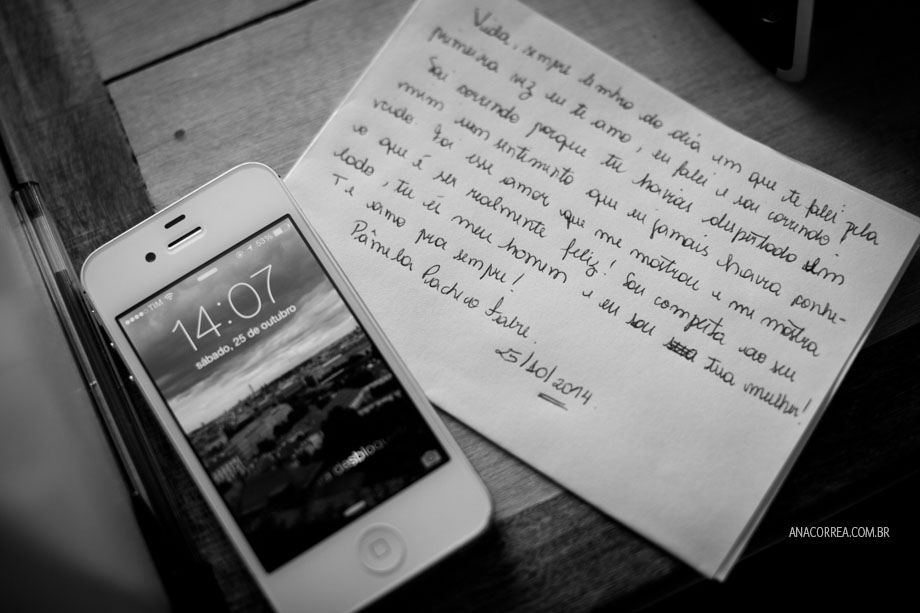 Vida, sempre lembro do dia em que te falei pela
primeira vez eu te amo, eu falei e sai correndo
Sai correndo porque tu havias despertado em
mim um sentimento que eu jamais havia conhe-
cido. Foi esse amor que me mostrou e me mostra
o que é ser realmente feliz! Sou completa ao seu
lado, tu és meu homem e eu sou tua mulher!
Te amo pra sempre!
Pâmela Pacheco
25/10/2014
TIM 53%
14:07
sábado, 25 de outubro
desbloq
ANACORREA.COM.BR